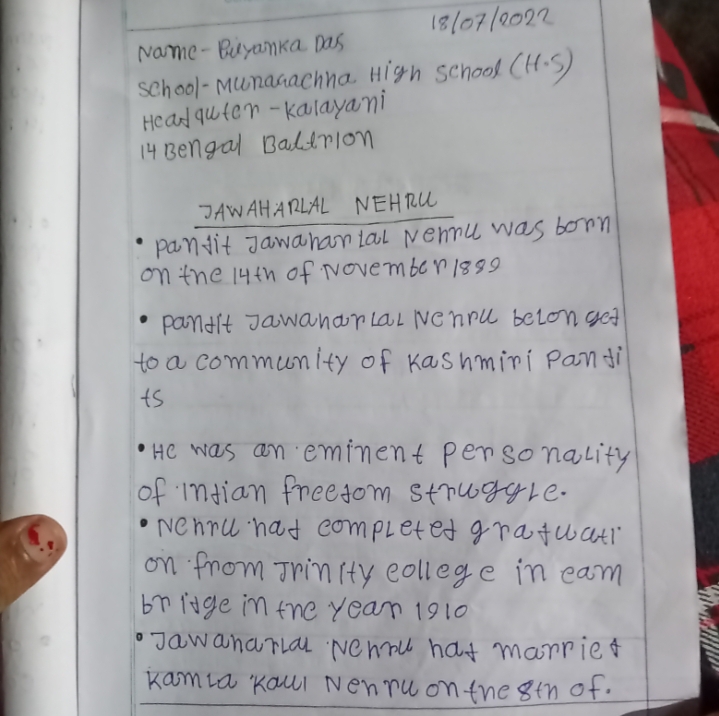 18/07/2022
Name - Priyanka Das
School - Munaachna High School (H.S)
Headquter - Kalayani
14 Bengal Baltrion
JAWAHARLAL NEHRU
• Pandit Jawaharlal Nehru was born
on the 14th of November 1889
• Pandit Jawaharlal Nehru belonged
to a community of Kashmiri Pandi
ts
• He was an eminent personality
of Indian freedom struggle.
• Nehru had completed graduati
on from Trinity college in cam
bridge in the year 1910
• Jawaharlal Nehru had married
Kamla Kaul Nehru on the 8th of.